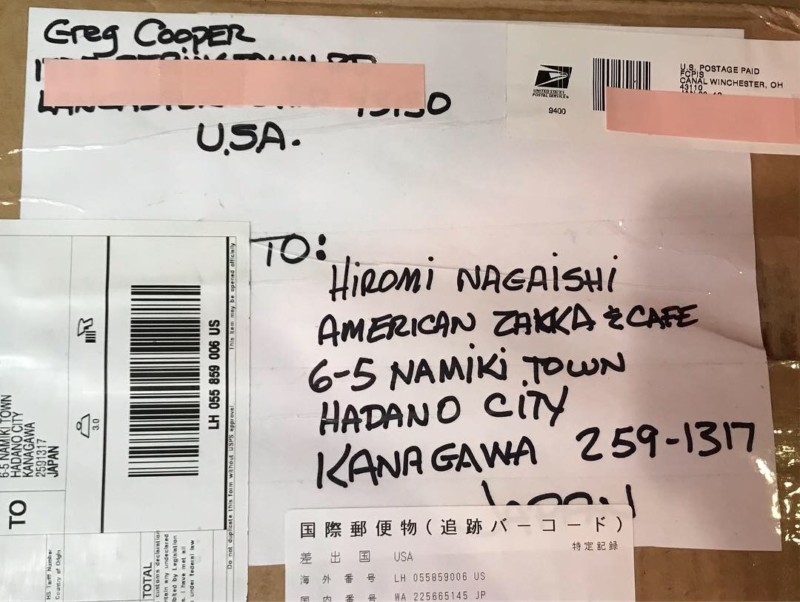 Greg Cooper
U.S.A.
UNITED STATES
POSTAL SERVICE
9400
U.S. POSTAGE PAID
FCPIS
CANAL WINCHESTER, OH
43110
TO:
HIROMI NAGAISHI
AMERICAN ZAKKA & CAFE
6-5 NAMIKI TOWN
HADANO CITY
KANAGAWA 259-1317
国際郵便物(追跡バーコード)
特定記録
差出国 USA
海外番号 LH 055859006 US
国内番号 WA 225665145 JP
TO
6-5 NAMIKI TOWN
HADANO CITY
KANAGAWA
2591317
JAPAN
3.0
LH 055 859 006 US
This item may be opened officially.
Do not duplicate this form without USPS approval.
HS Tariff Number
Country of Origin
TOTAL